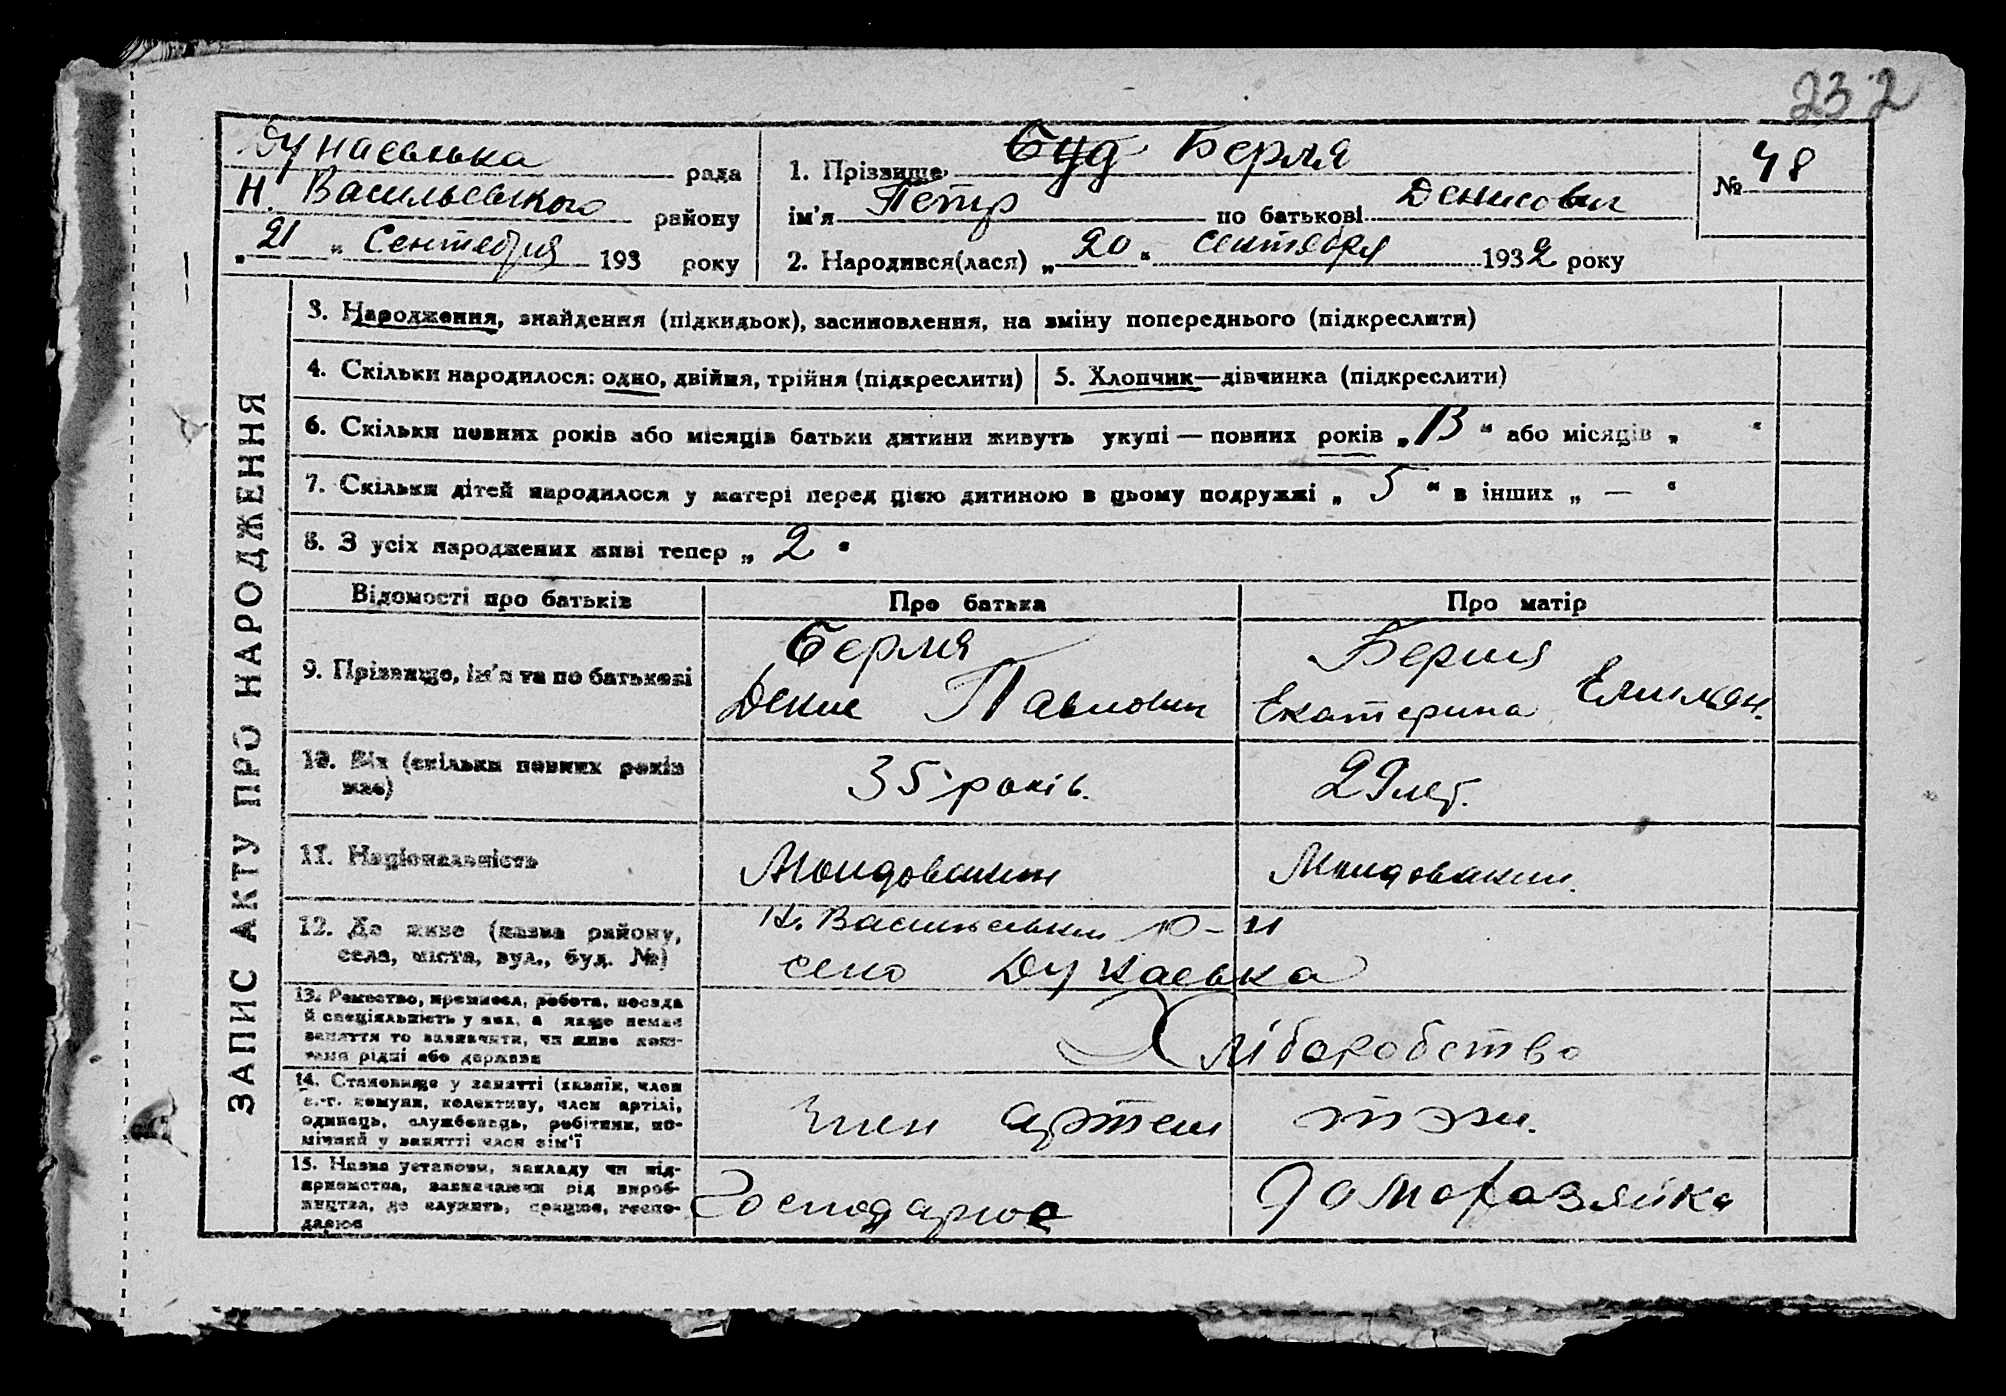 232
Дунаевська рада
Н. Васильевського району
„21“ Сентября 193 року
1. Прізвище Буд Берля
ім'я Петр по батькові Денисович
2. Народився(лася) „20“ сентября 1932 року
№ 48
ЗАПИС АКТУ ПРО НАРОДЖЕННЯ
3. Народження, знайдення (підкидьок), засиновлення, на зміну попереднього (підкреслити)
4. Скільки народилося: одно, двійня, трійня (підкреслити)
5. Хлопчик—дівчинка (підкреслити)
6. Скільки повних років або місяців батьки дитини живуть укупі — повних років „13“ або місяців „ “
7. Скільки дітей народилося у матері перед цією дитиною в цьому подружжі „5“ в інших „—“
8. З усіх народжених живі тепер „2“
Відомості про батьків Про батька Про матір
9. Прізвище, ім'я та по батькові
Берля
Денис Павлович
Берля
Екатерина Елимян.
10. Вік (скільки повних років має)
35 років.
29 лет.
11. Національність
Молдованин
Молдованин.
12. Де живе (назва району,
села, міста, вул., буд. №)
Н. Васильевський р-н
село Дунаевка
13. Ремество, промисел, робота, посада
й спеціяльність у них, а якщо немає
заняття то зазначити, чи живе кош-
тами рідні або держави
Хліборобство
14. Становище у занятті (хазяїн, член
с.-г. комуни, колективу, член артілі,
одинець, службовець, робітник, по-
мічний у занятті член сім'ї
член артели
тоже.
15. Назва установи, закладу чи під-
приємства, зазначаючи рід вироб-
ництва, де служить, працює, госпо-
дарює
Господарює
домохазяйка